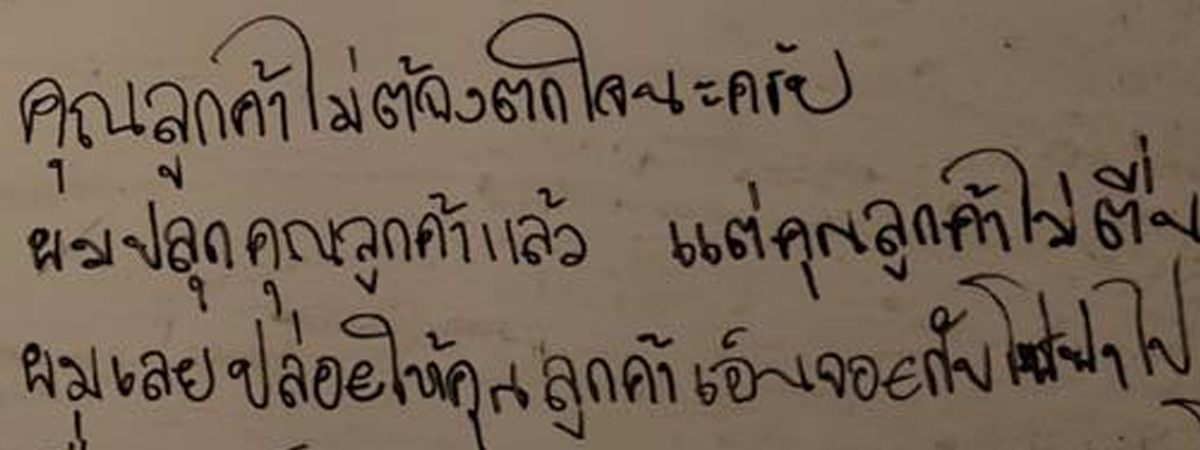 คุณลูกค้าไม่ต้องตกใจนะครับ
ผมปลุกคุณลูกค้าแล้ว แต่คุณลูกค้าไม่ตื่น
ผมเลยปล่อยให้คุณลูกค้าเอ็นจอยกับ ไป